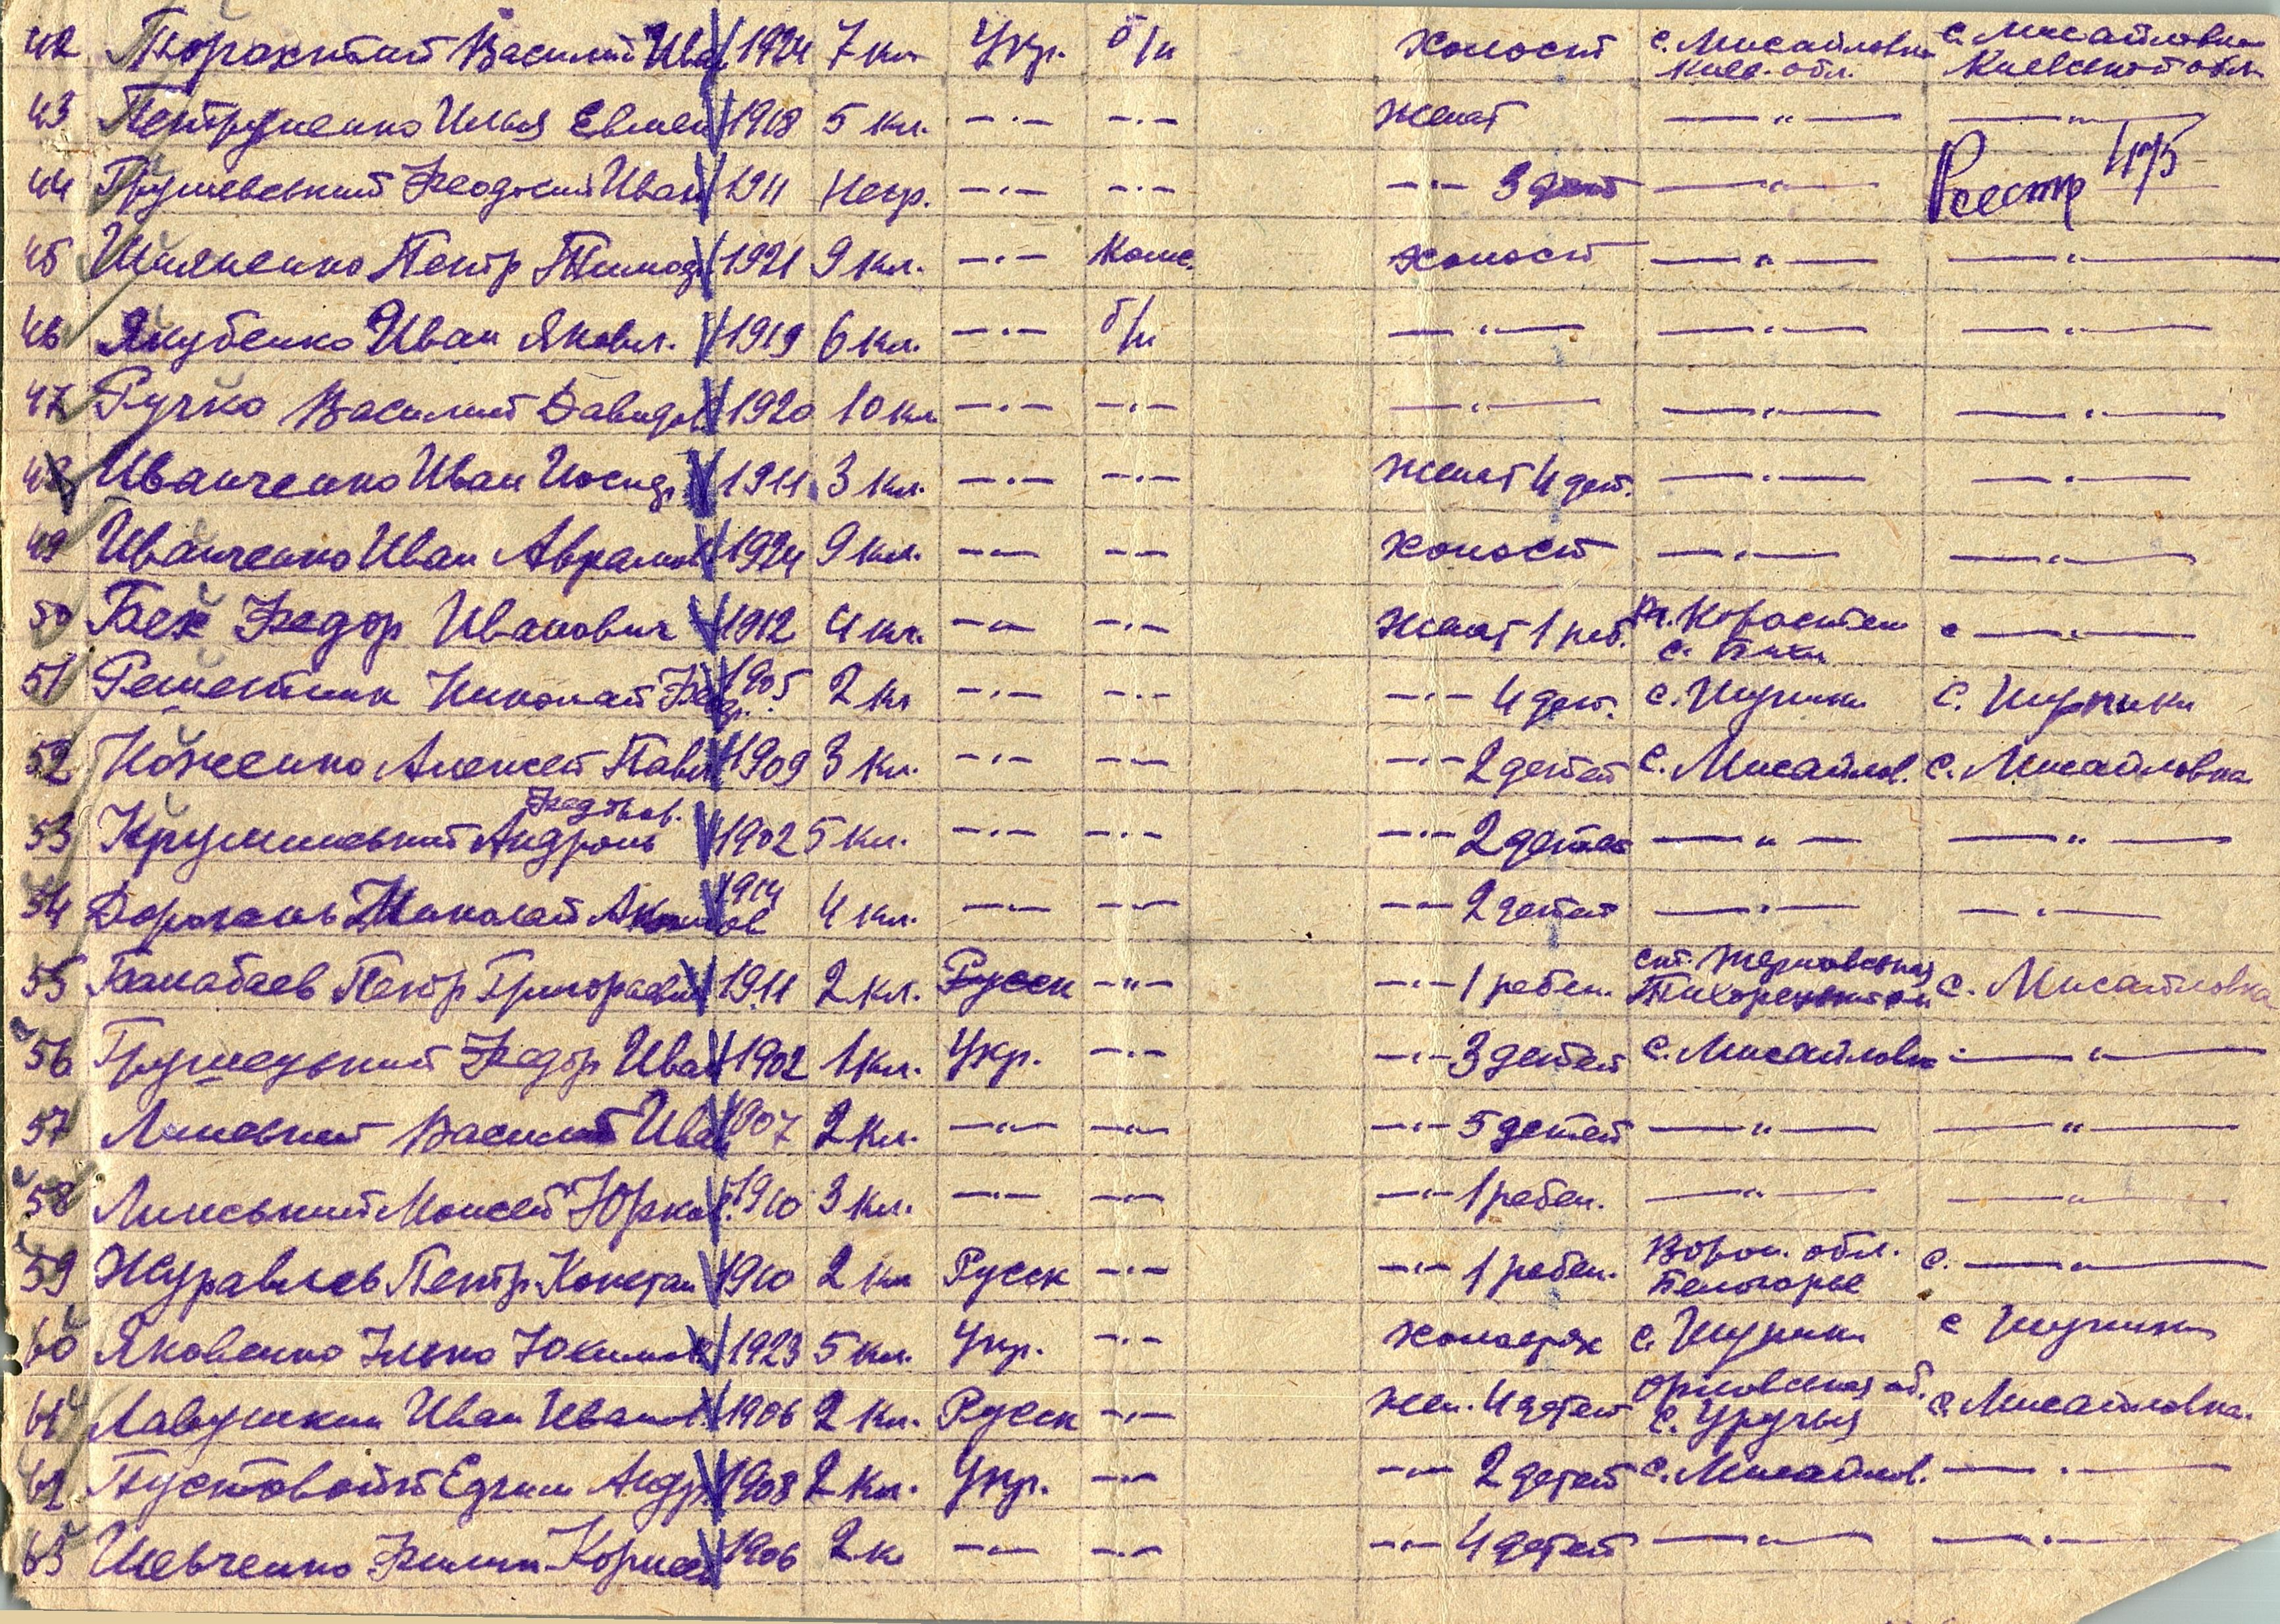 42 Порохитый Василий Иван 1924 7 кл Укр. б/п холост с. Мисайловка Киев. обл. с. Мисайловка Киевской обл.
43 Петруненко Илья Евмен 1918 5 кл. —·— —·— женат —"— —"—
44 Грушевський Феодосий Иван 1911 Негр. —·— —·— —·— 3 дет —"— Реестр 475
45 Шияненко Петр Тимоф 1921 9 кл. —·— Комс. холост —"— —"—
46 Якубенко Иван Яковл. 1919 6 кл. —·— б/п —"— —"— —"—
47 Ручко Василий Давидов 1920 10 кл —·— —·— —"— —"— —"—
48 Иванченко Иван Иосиф 1911 3 кл. —·— —·— женат 4 дет. —"— —"—
49 Иванченко Иван Аврамов 1924 9 кл. —·— —·— холост —"— —"—
50 Бех Федор Иванович 1912 4 кл. —·— —·— женат 1 реб. Коростен с. с —"—
51 Решетник Николай Фед. 1905 2 кл —·— —·— —·— 4 дет. с. Щупики с. Щупики
52 Ноженко Алексей Павл 1909 3 кл. —·— —·— —·— 2 детей с. Мисайлов. с. Мисайловка
Федоров.
53 Крушинський Андронь 1902 5 кл. —·— —·— —·— 2 детей —"— —"—
54 Дорогань Николай 1914 4 кл. —·— —·— —·— 2 детей —"— —"—
55 Балабаев Петр Григораевич 1911 2 кл. Русск —"— —·— 1 ребен. ст. Терновская Тихорецкой с. Мисайловка
56 Грушецький Федор Иван 1902 1 кл. Укр. —·— —·— 3 детей с. Мисайловк —"—
57 Линевкий Василий Иван 1907 2 кл. —·— —·— —·— 5 детей —"— —"—
58 Линський Моисей Юрков. 1910 3 кл. —·— —·— —·— 1 ребен. —"— —"—
59 Журавлев Петр Констан 1910 2 кл Русск —·— —·— 1 ребен. Ворон. обл. Белогорье с. —"—
60 Яковенко Илько Юхимов 1923 5 кл. Укр. —·— холостях с. Щупики с Щупики
61 Лавушкин Иван Иванов 1906 2 кл. Русск —·— жен. 4 детей Орловская об. с. Уручья с Мисайловка.
62 Пустовойт Ефим Андр 1908 2 кл. Укр. —·— —·— 2 детей с. Мисайлов. —"—
63 Шевченко Филип Корнеев 1906 2 к —·— —·— —·— 4 детей —"— —"—